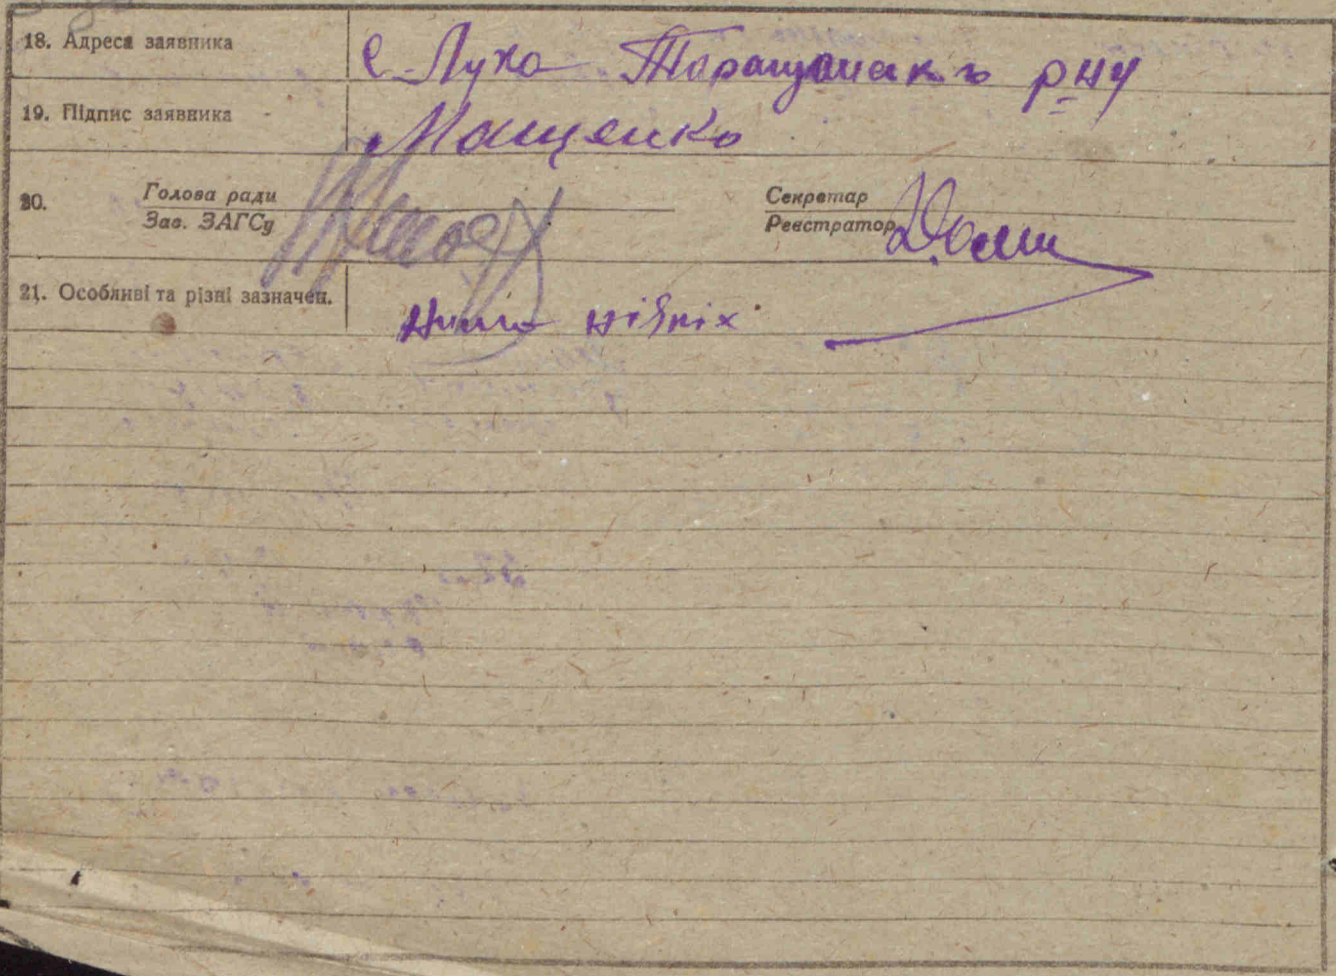 18. Адреса заявника с. Луха Таращанськ р-ну
19. Підпис заявника Мащенко
20. Голова ради Секретар
Зав. ЗАГСу Реєстратор
21. Особливі та різні зазначен. Нима ніяких